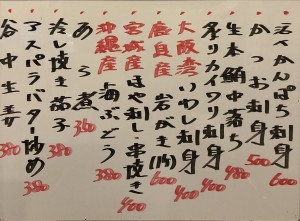 活〆かんぱち刺身 600
かつお刺身 500
生本鮪中落ち 480
炙りカイワリ刺身 400
大阪湾いわし刺身 400
鳥貝産岩がき(1ヶ) 600
宮城産ほや刺し・串焼き 400
沖縄産海ぶどう 380
あら煮 360
冷し焼き茄子 380
アスパラバター炒め 380
谷中生姜 380